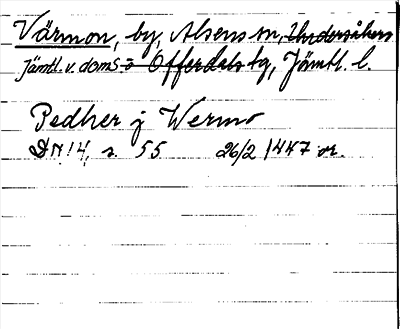 Värmon, by, Alsens sn, Undersåkers
Jämtl. v. doms. o Offerdals tg, Jämtl. l.
Pedher j Wermo
DN 14, s. 55 26/2 1447 or.